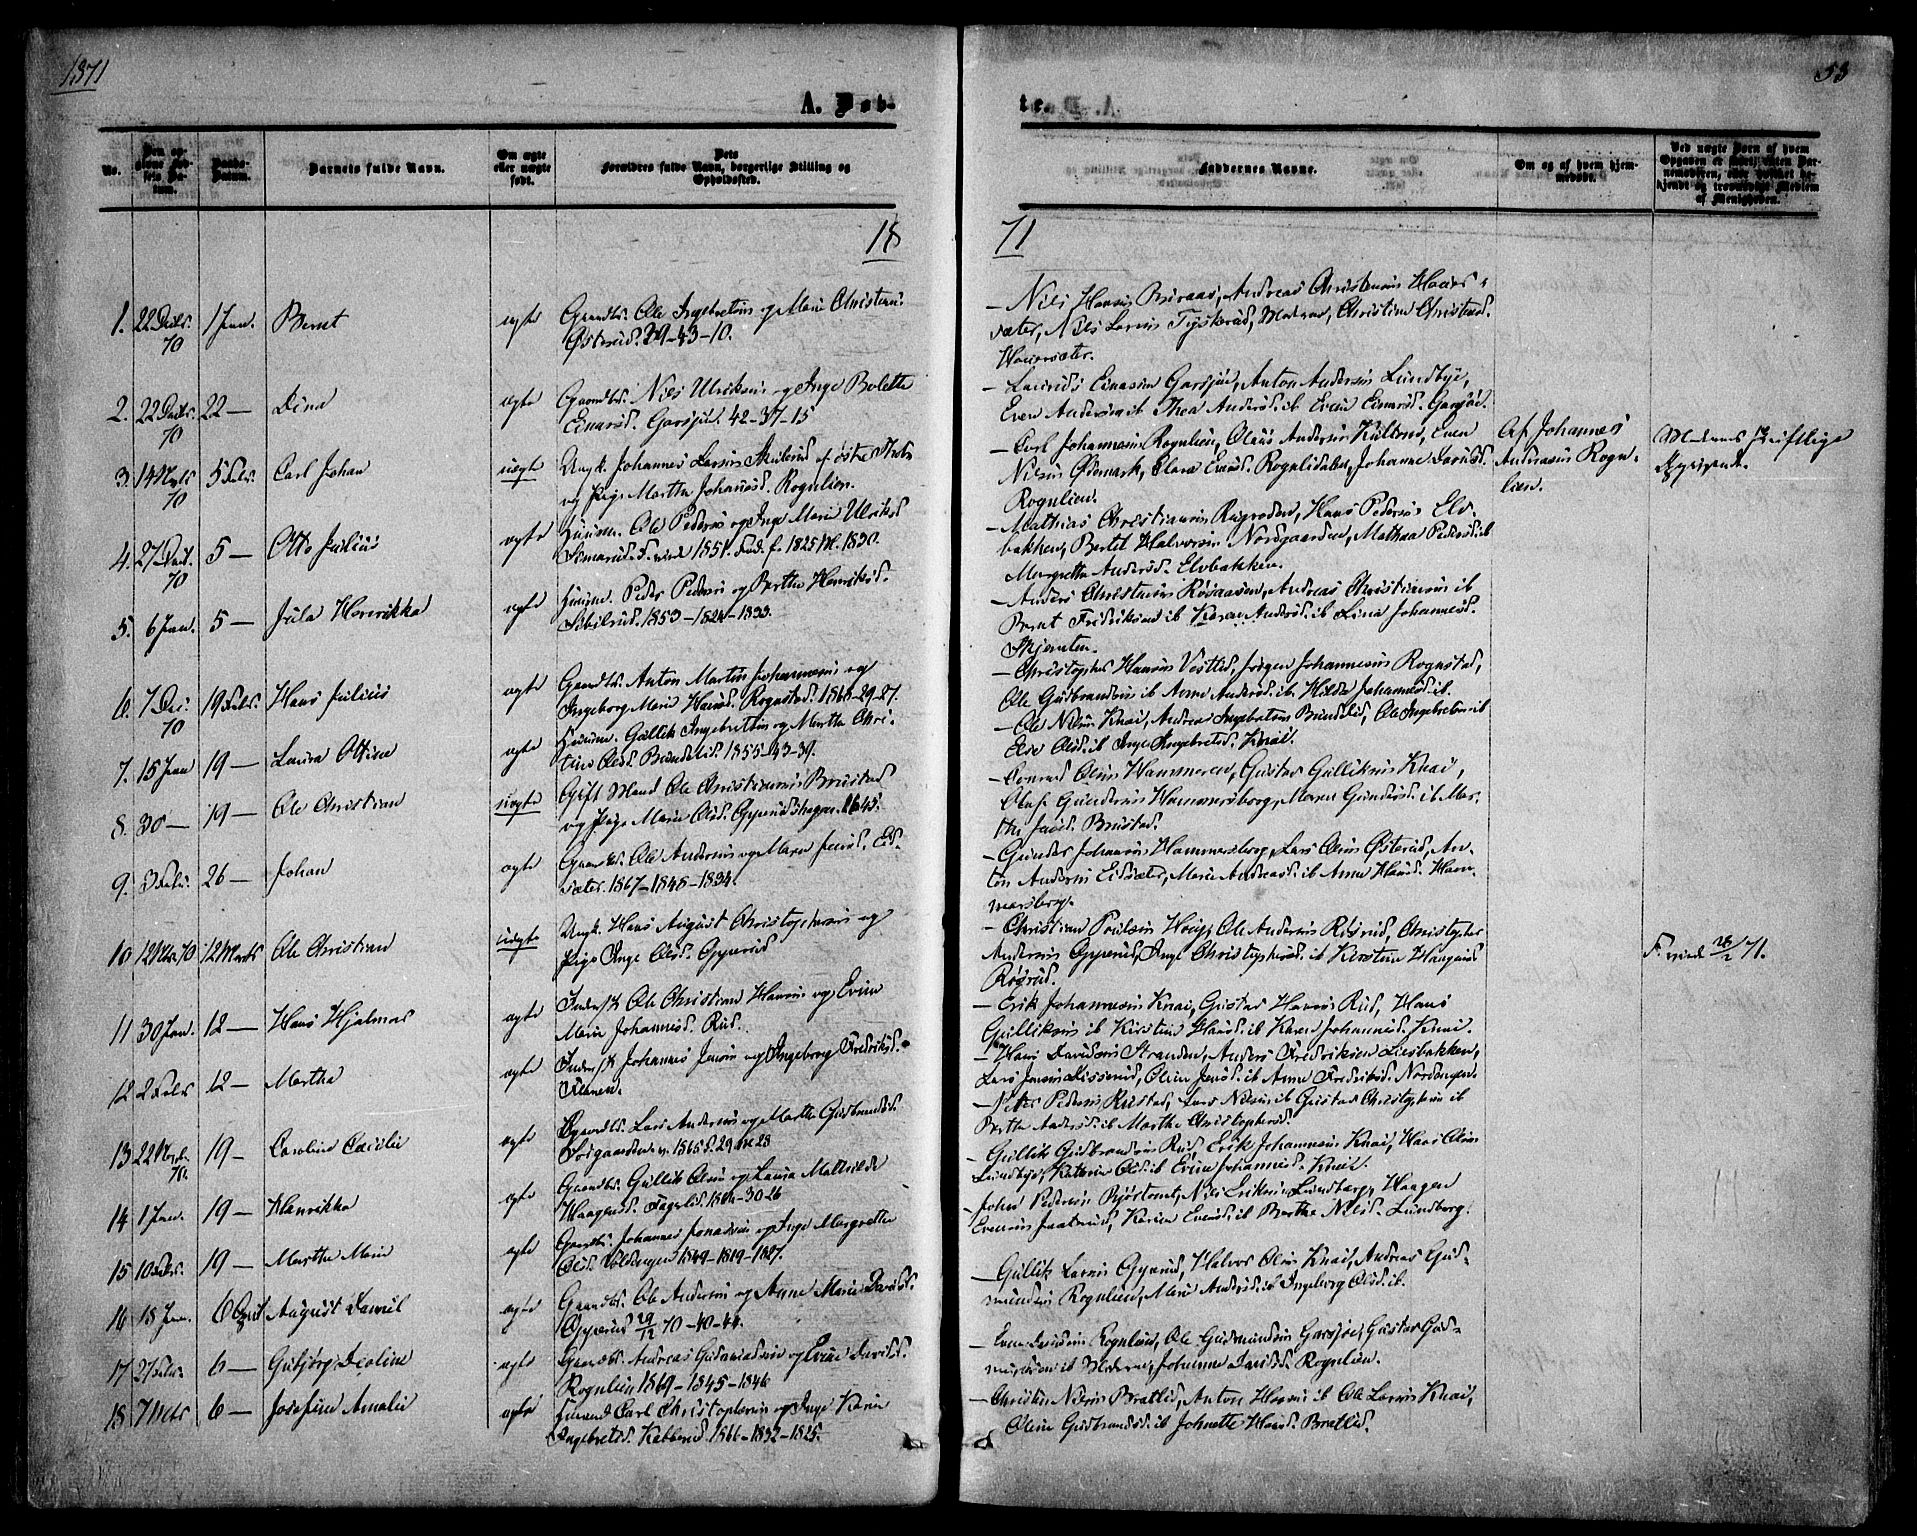 1871
53
A. Døb-
te.
No.
Barnets fulde Navn.
Om ægte eller uægte født.
Dets Forældres fulde Navn, borgerlige Stilling og Opholdssted.
Faddernes Navne.
Om og af hvem hjemmedøbt.
18
71
1. 22 Decbr. 70 1 Jan. Bernt ægte Gaardbr. Ole Ingebretsen og Marie Christensd.
Østerud. 39-43-10.
Niels Hansen Buraas, Andreas Christensen Haver-
sæter, Niels Larsen Tyskerud, Moderen, Christine Christensd.
Haversæter.
2. 22 Decbr. 70 22 — Dina ægte Gaardbr. Niels Ulriksen og Inge Bolette
Einarsd. Garsjøe. 42-37-15
Laurids Einarsen Garsjøe, Anton Andersen Lundbye,
Even Andersen ib Thea Andersd. ib Evine Einarsd. Garsjøe.
3. 14 Novbr 70 5 Febr. Carl Johan uægte Ungk. Johannes Larsen Skulerud af østre
og Pige Martha Johannesd. Rognlien.
Carl Johannesen Rognlien, Olaus Andersen Kultorp, Even
Nielsen Ødemark, Clara Evensd. Rognlidalen, Johanne Davidsd.
Rognlien.
Af Johannes
Andreasen Rogn-
lien.
Moderens skriftlige
4. 27 Decbr. 70 5 — Otto Julius ægte Huusm. Ole Pedersen og Inge Marie Ulriksd.
1825 M. 1830.
Mathias Christiansen Rugroden, Hans Pedersen Elv-
bakken, Bertel Halvorsen Nordgaarden, Mathea Pedersd. ib
Margrethe Andersd. Elvbakken.
5. 6 Jan. 5 — Jula Henrikka ægte Huusm. Peder Pedersen og Berthe Henriksd.
Sibilrud. 1853-1824-1833.
Anders Christensen Røsaasen, Andreas Christiansen ib
Bernt Fredriksen ib Karen Andersd. ib Lina Johannesd.
Skjernten.
6. 7 Dec. 70 19 Febr. Hans Julius ægte Gaardbr. Anton Martin Johannesen og
Ingeborg Marie Hansd. Rognstad. 1865-29-27.
Christopher Hansen Vestlid, Jørgen Johannesen Rognstad,
Ole Gudbrandsen ib Anne Andersd. ib. Hilda Johannesd. ib.
7. 15 Jan 19 — Laura Otilie ægte Huusm. Gullik Ingebretsen og Marthe Chri-
stine Olsd. Bundelid. 1855-43-39.
Ole Nilsen Knai, Andreas Ingebretsen Bundelid, Ole Ingebretsen ib
Else Olsd. ib Inge Ingebretsd. Knai.
8. 30 — 19 — Ole Christian uægte Gift Mand Ole Christiansen Brustad
og Pige Marie Olsd. Opperudshagen. 1845.
Conrad Olsen Hammeren, Gustav Gulliksen Knai,
Olaf Gundersen Hammersborg, Maren Gundersd. ib Mar-
the Jensd. Brustad.
9. 3 Febr. 26 — Johan ægte Gaardbr. Ole Andersen og Maren Jensd. Eid-
sæter. 1867-1848-1834.
Gunder Johansen Hammersborg, Lars Olsen Østerud, An-
ton Andersen Eidsæter, Marie Andreasd. ib Anne Hansd. Ham-
mersborg.
10 12 Nov. 70 12 Marts Ole Christian uægte Ungk. Hans August Christophersen og
Pige Inge Olsd. Opperud
Christian Poulsen Haug, Ole Andersen Risrud, Christopher
Andersen Opperud, Inge Christophersd. ib Kirstine Haagensd
Røsrud.
F. viede 28/2 71.
11 30 Jan. 12 — Hans Hjalmar ægte Inders. Ole Christian Hansen og Evine
Marie Johannesd. Rud.
Erik Johannesen Knai, Gustav Hansen Rud, Hans
Gulliksen ib Kirstine Hansd. ib Karen Johannesd. Knai.
12 2 Febr 12 — Martha ægte Inders. Johannes Jensen og Ingeborg Fredriksd.
Flaten.
Hans Davidsen Stranden, Anders Fredriksen Liesbakken,
Lars Jensen Kisserud, Oline Jensd. ib Anne Fredriksd. Nordengen.
13 22 Novbr. 70. 19 — Caroline Cecilie ægte Gaardbr. Lars Andersen og Marthe Gudbrandsd.
1865 F. 29 M. 28
Peter Pedersen Rustad, Lars Nilsen ib Gustav Christophersen ib
Berthe Andersd. ib Marthe Christophersd.
14 1 Jan. 19 — Henrikka ægte Gaardbr. Gullik Olsen og Laura Mathilde
Haagensd. Fagerlid. 30-26
Gullik Gudbrandsen Rud, Erik Johannesen Knai, Hans Olsen
Lundbye, Katrine Olsd. ib Evine Johannesd. Knai.
15 10 Febr. 19 — Marthe Marie ægte Gaardbr. Johannes Jonassen og Inge Margrethe
Olsd. Voldengen 1849-1819-1827.
John Pedersen Bjøstomt, Niels Eriksen Lundberg, Haagen
Evensen Jaatrud, Karine Evensd. ib Berthe Nielsd. Lundberg.
16 18 Jan. 6 April August Laurit ægte Gaardbr. Ole Andersen og Anne Marie Davidsd.
Opperud 29/12 70-40-44.
Gullik Larsen Opperud, Halvor Olsen Knai, Andreas Gud-
mundsen Rognlien, Marie Andersd. ib Ingeborg Olsd. ib.
17 2 Febr. 6 — Gubjørg Deoline ægte Gaardbr. Andreas Gudmundsen og Evine Davidsd.
Rognlien 1869-1845-1846
Even Davidsen Rognlien, Ole Gudmundsen Garsjøe, Gustav Gud-
mundsen ib Moderen, Johanne Davidsd. Rognlien.
18 7 Mars 6 — Josefine Amalie ægte Huusmd Carl Christophersen og Inge Karine
Ingebretsd. Kabberud. 1866-1832-1825.
Christen Nilsen Bratlid, Anton Hansen ib Ole Larsen Knai,
Oline Gudbrandsd. ib Johnette Hansd. Bratlid.